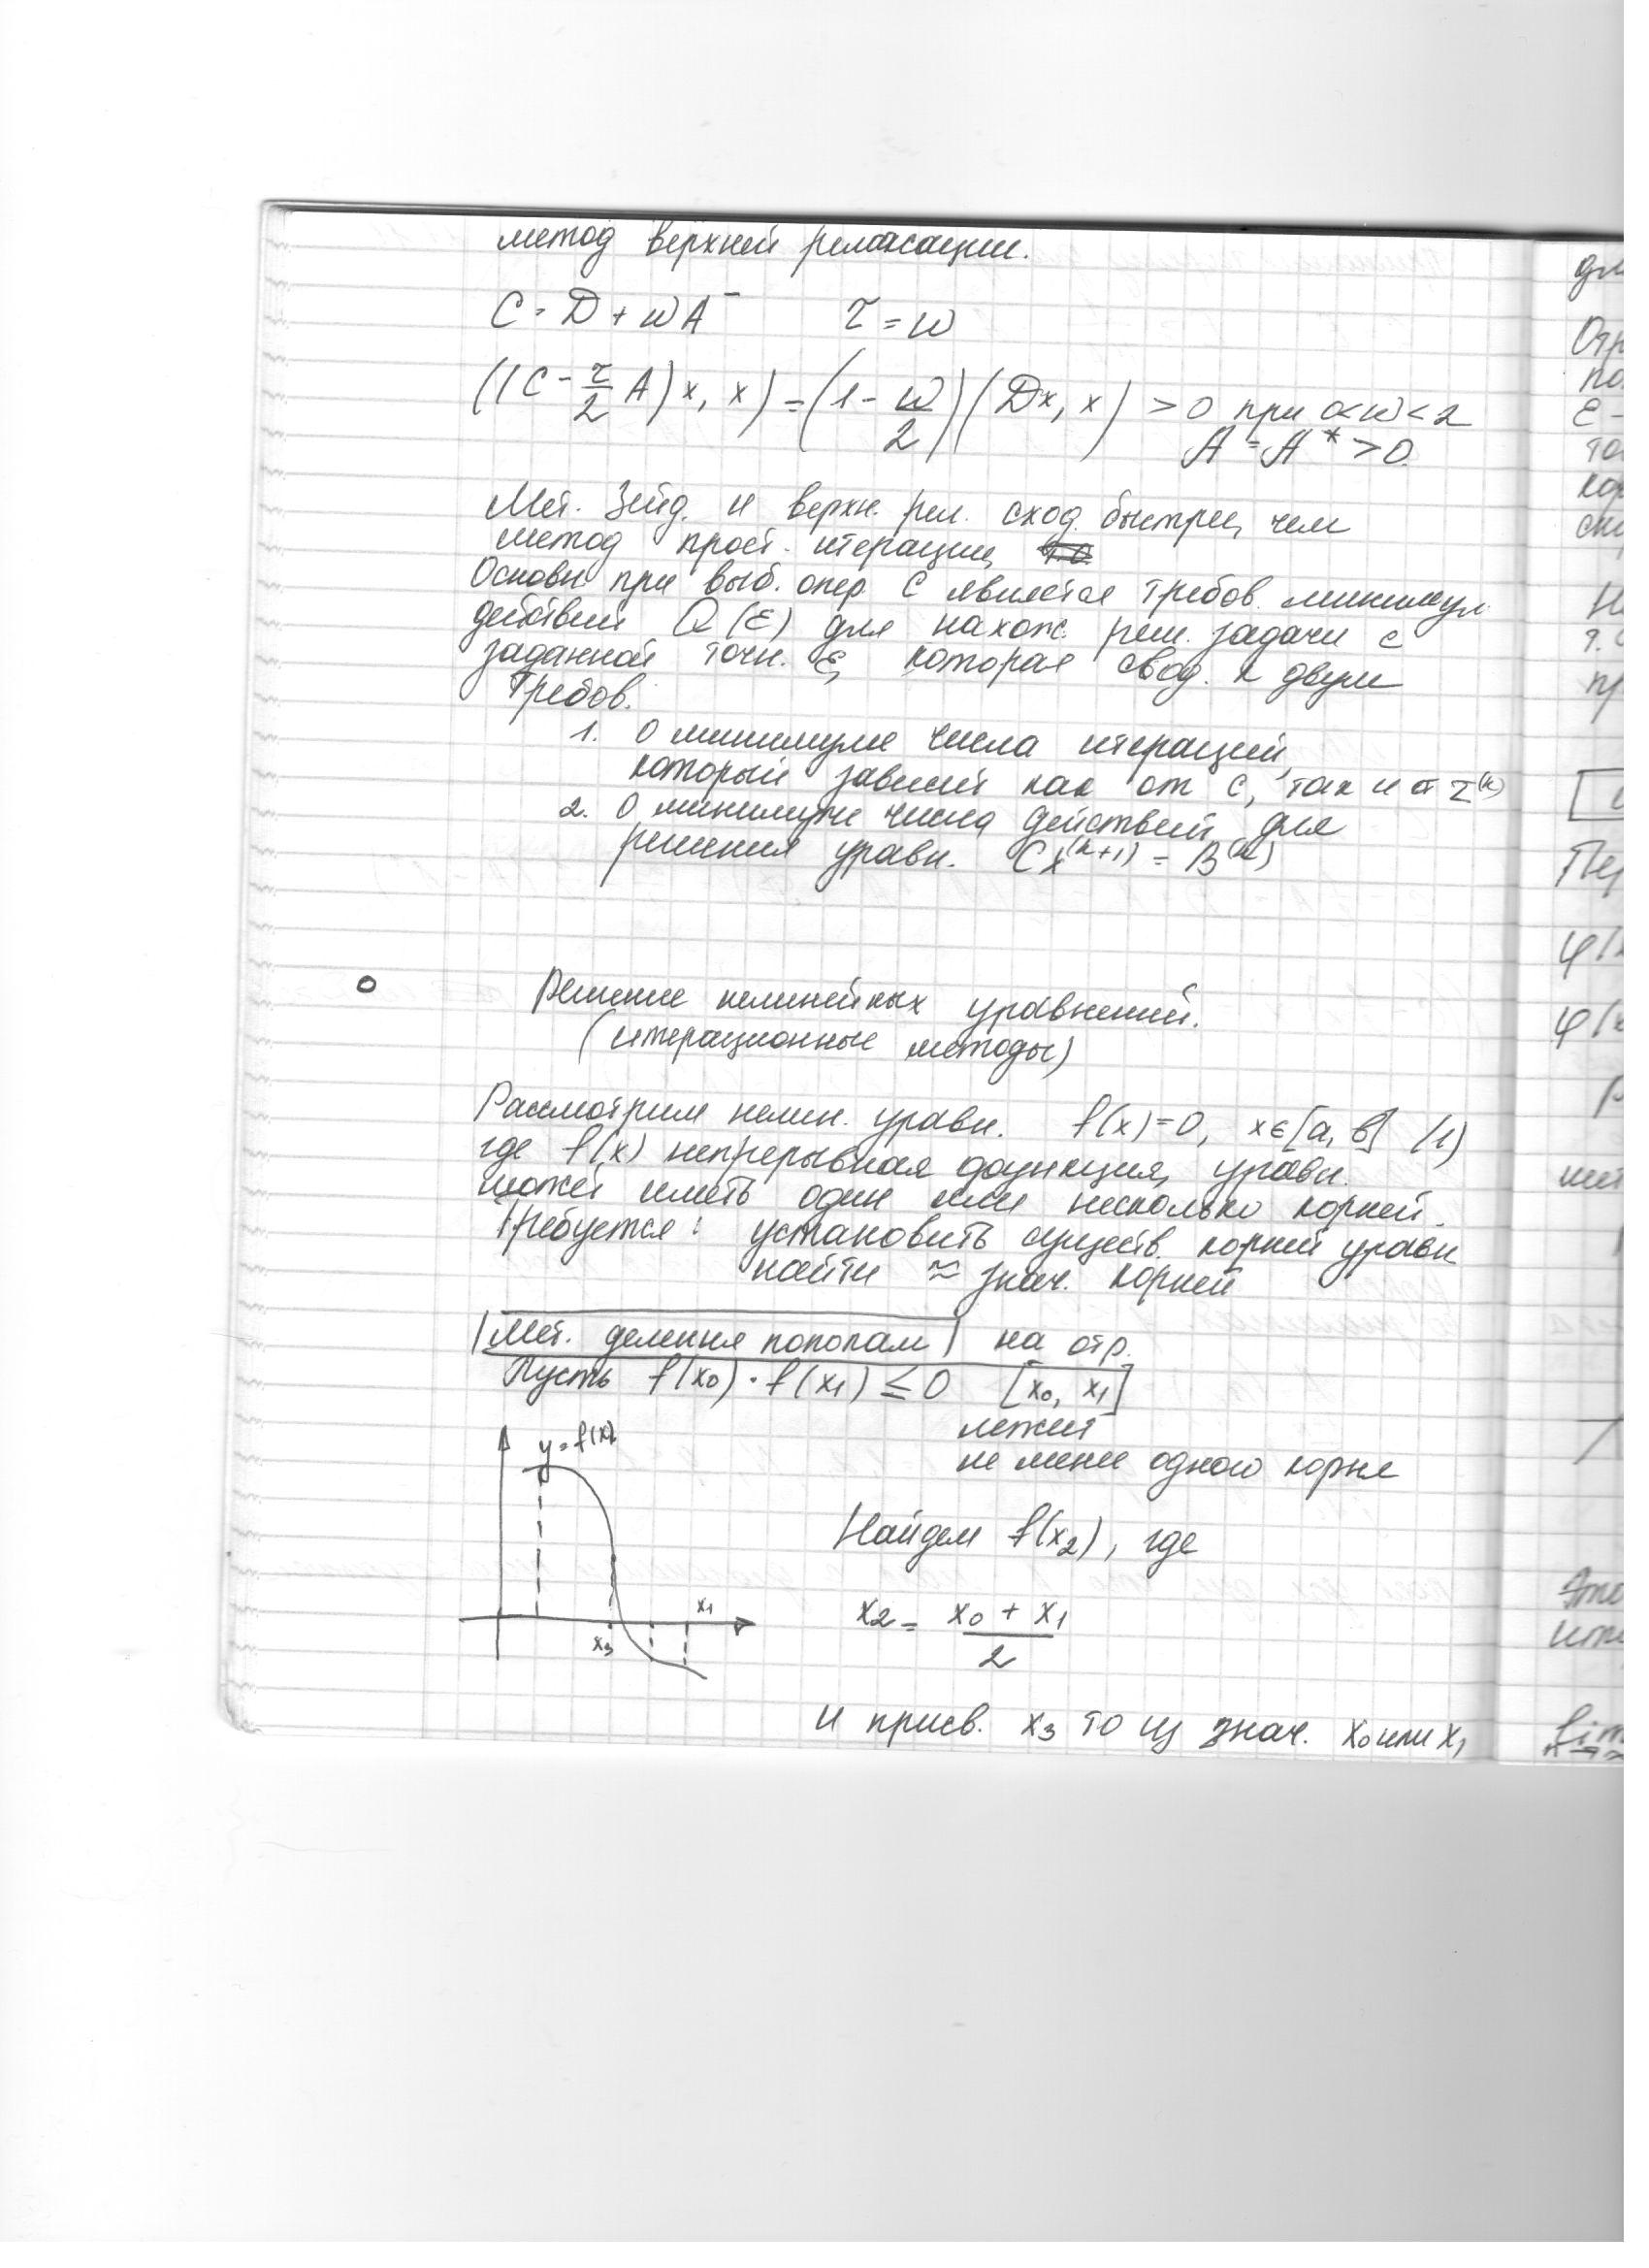 метод верхней релаксации.
C = D + ωA⁻ τ = ω
((C - τ/2 A) x, x) = (1 - ω/2)(Dx, x) > 0 при 0<ω<2
A = A* > 0.
Мет. Зейд. и верхн. рел. сход. быстрее, чем
метод прост. итерации,
Основн при выб. опер. C является требов. минимум
действий Q(ε) для нахож. реш. задачи с
заданной точн. ε, которая свод. к двум
требов.
1. о минимуме числа итераций,
который зависит как от C, так и от τ⁽ᵏ⁾
2. о минимуме числа действий для
решения уравн. Cx⁽ᵏ⁺¹⁾ = B⁽ᵏ⁾
Решение нелинейных уравнений.
(итерационные методы)
Рассмотрим нелин. уравн. f(x)=0, x∈[a, b] (1)
где f(x) непрерывная функция, уравн.
может иметь один или несколько корней.
Требуется: установить существ. корней уравн
найти ≈ знач. корней
Мет. деления пополам на отр.
Пусть f(x₀)·f(x₁) ≤ 0 [x₀, x₁]
лежит
не менее одного корня
y=f(x)
Найдем f(x₂), где
x₁
x₃
x₂ = (x₀ + x₁)/2
и присв. x₃ то из знач. x₀ или x₁